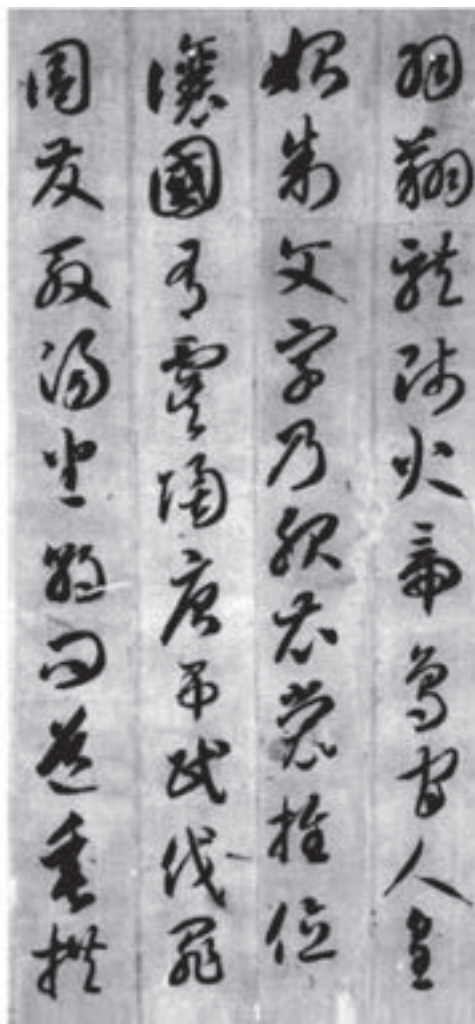 羽翔龍師火帝鳥官人皇
始制文字乃服衣裳推位
讓國有虞陶唐弔民伐罪
周發殷湯坐朝問道垂拱